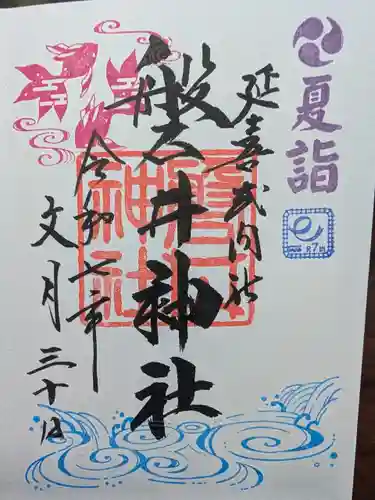 夏詣
延喜式内社
磐井神社
令和七年
文月
三十日